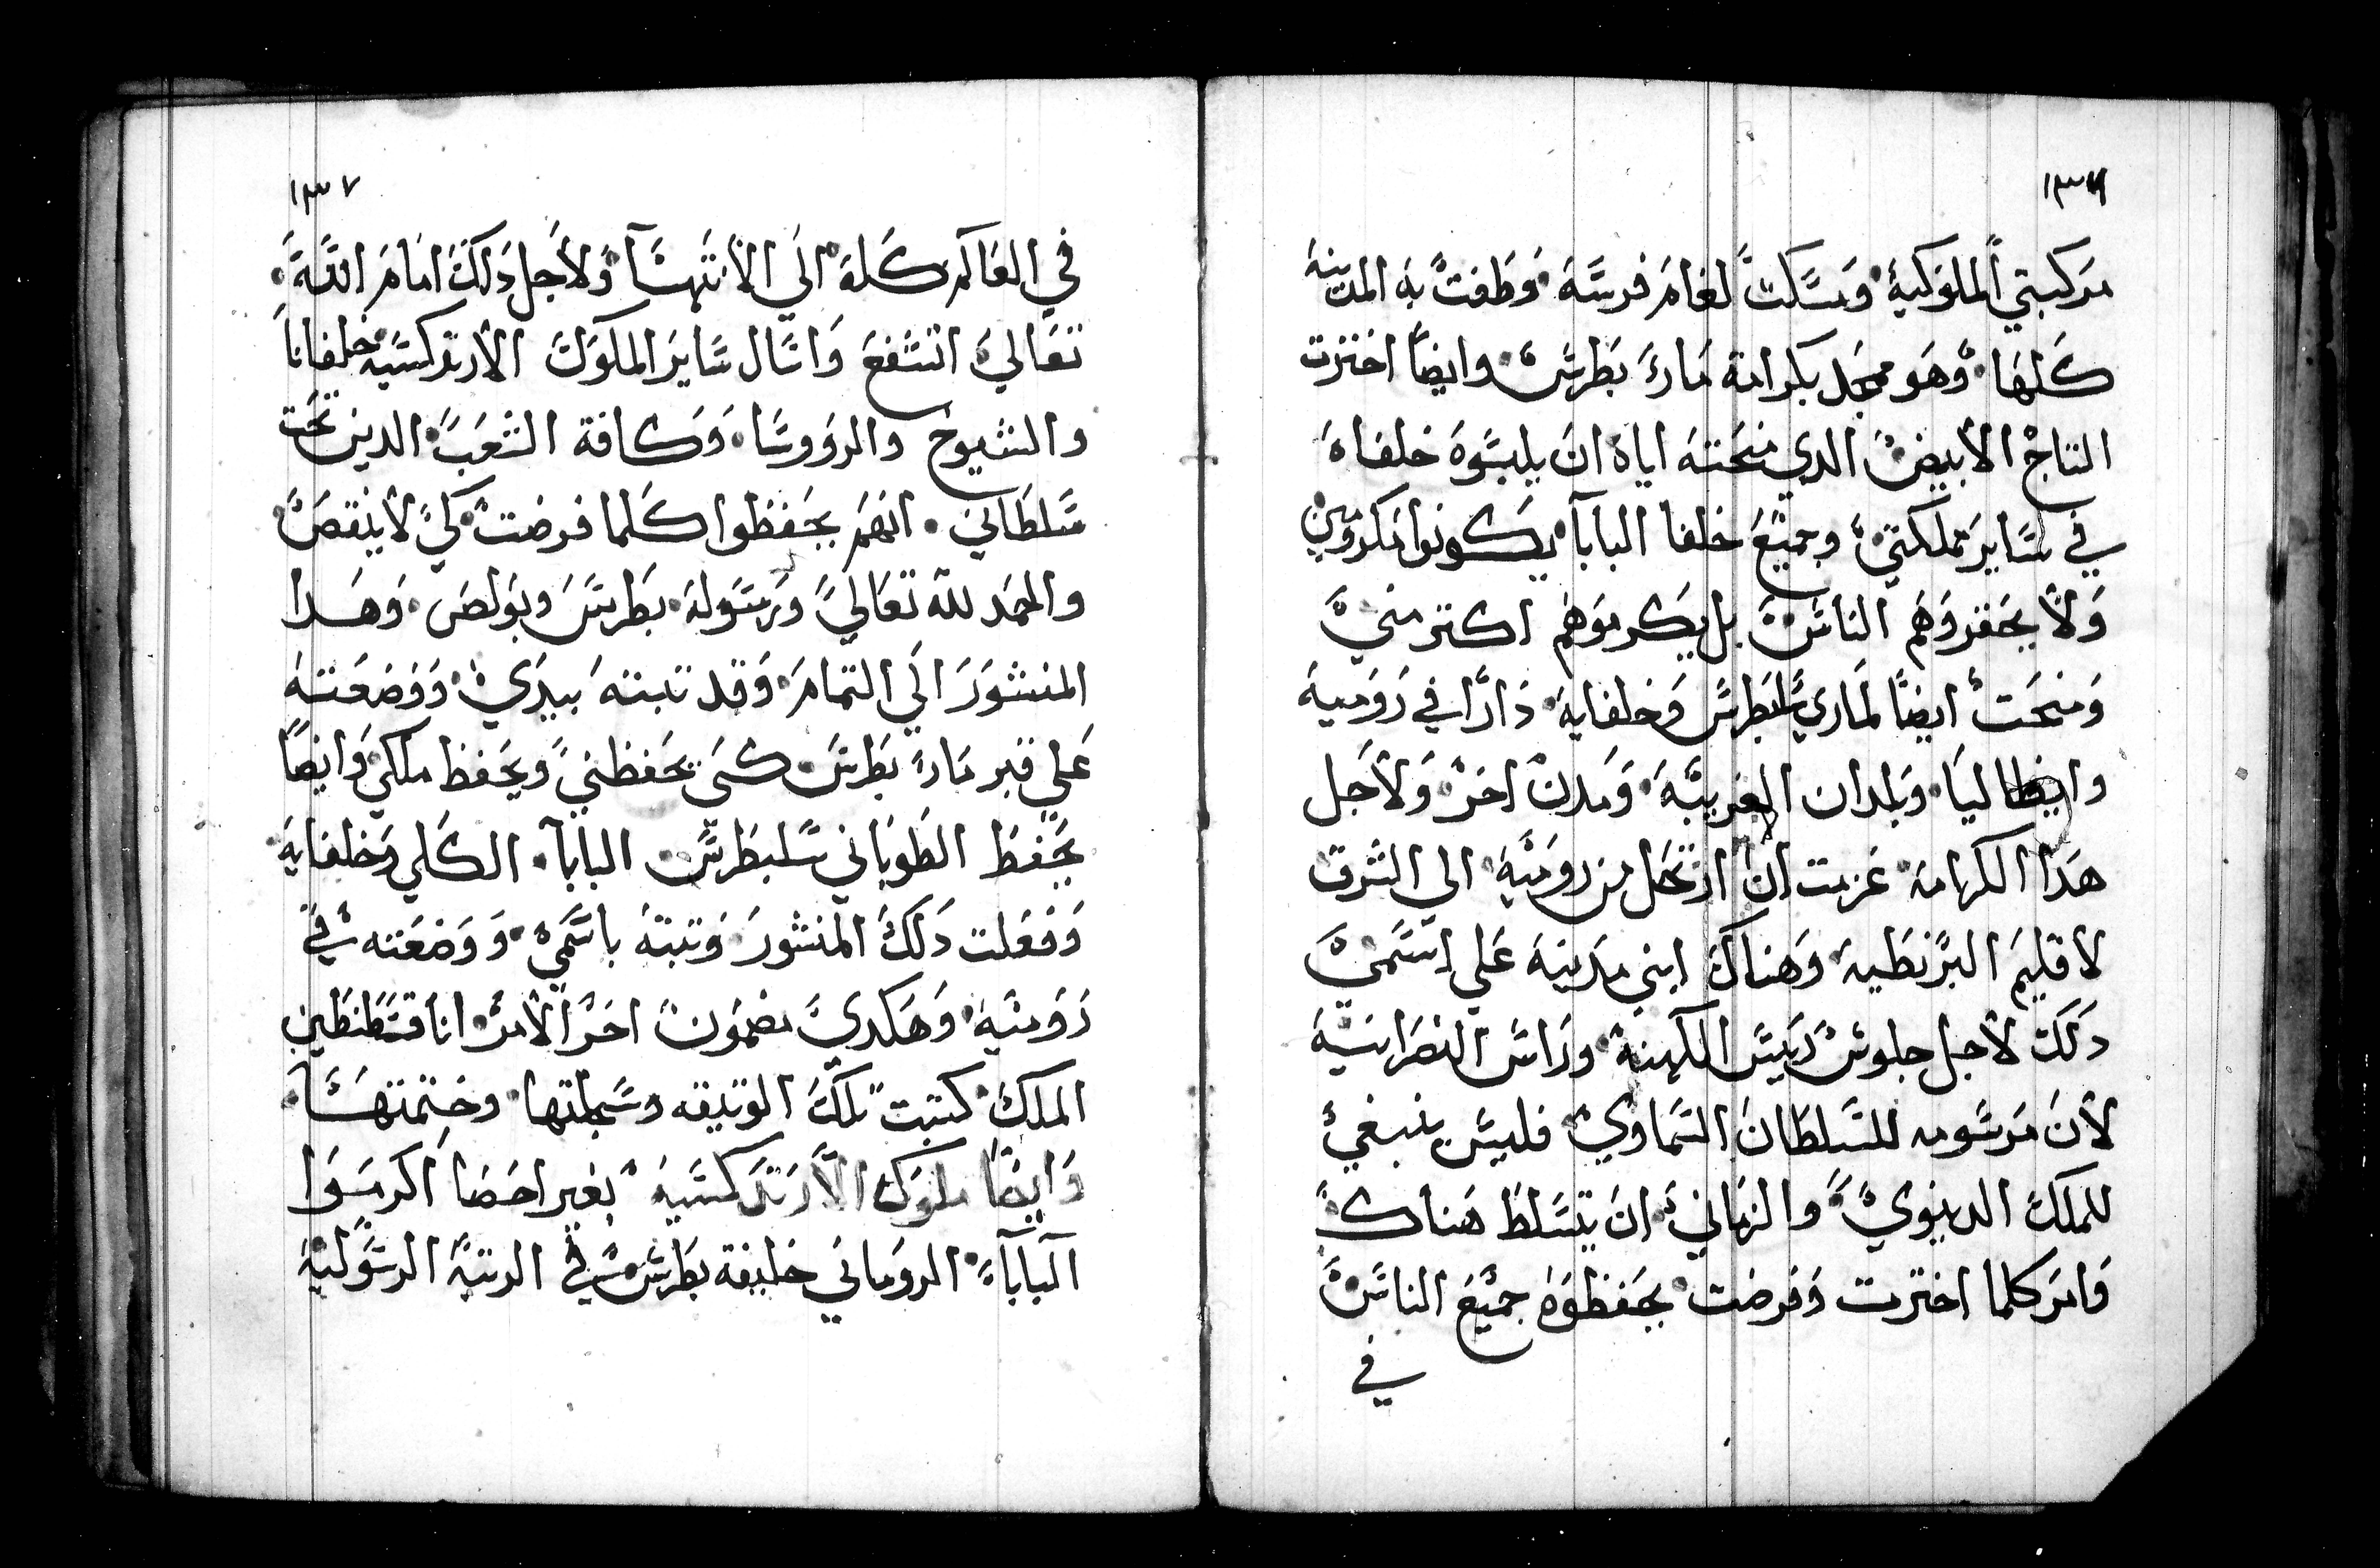 ١٣٦
مركبتي الملوكية ومسكت لغام فرسه وطفت به المدينه
كلها وهو ممجد بكرامة ماري بطرس وايضا اخترت
التاج الابيض الدي منحته اياه ان يلبسوه خلفاه
في ساير مملكتي وجميع خلفا البابا يكونوا مكرومين
ولا يحقروهم الناس بل يكرموهم اكتر مني
ومنحت ايضا لماري سلبطرس وخلفايه دارا في روميه
وايطاليا وبلدان الغربيه ومدن اخر ولاجل
هدا الكرامه عزمت ان ارتحل من روميه الي الشرق
لاقليم البزنطيه وهناك ابني مدينه علي اسمي
دلك لاجل جلوس رييس الكهنة وراس النصرانيه
لان مرسومه للسلطان السماوي فليس ينبغي
للملك الدنيوي والزماني ان يتسلط هناك
وامر كلما اخترت وفرضت يحفظوه جميع الناس
في
١٣٧
في العالم كله الي الانتهسا ولاجل دلك امام الله
تعالي اتشفع واسال ساير الملوك الارتدكسيه خلفانا
والشيوخ والرووسا وكافة الشعب الدين تحت
سلطاني انهم يحفظوا كلما فرضت كي لا ينقص
والحمد لله تعالي ورسوله بطرس وبولص وهدا
المنشور الي التمام وقد تبته بيدي ووضعته
علي قبر ماري بطرس كي يحفظني ويحفظ ملكي وايضا
يحفظ الطوباني سلبطرس البابا الكلي وخلفايه
وفعلت دلك المنشور وتبته باسمي ووضعته في
روميه وهكدي مضمون اخر الامر انا قسطنطين
الملك كتبت تلك الوتيقه وسجلتها وختمتها
وايضا ملوك الارتدكسيه بغير احصا اكرموا
البابا الروماني خليفة بطرس في الرتبه الرسوليه